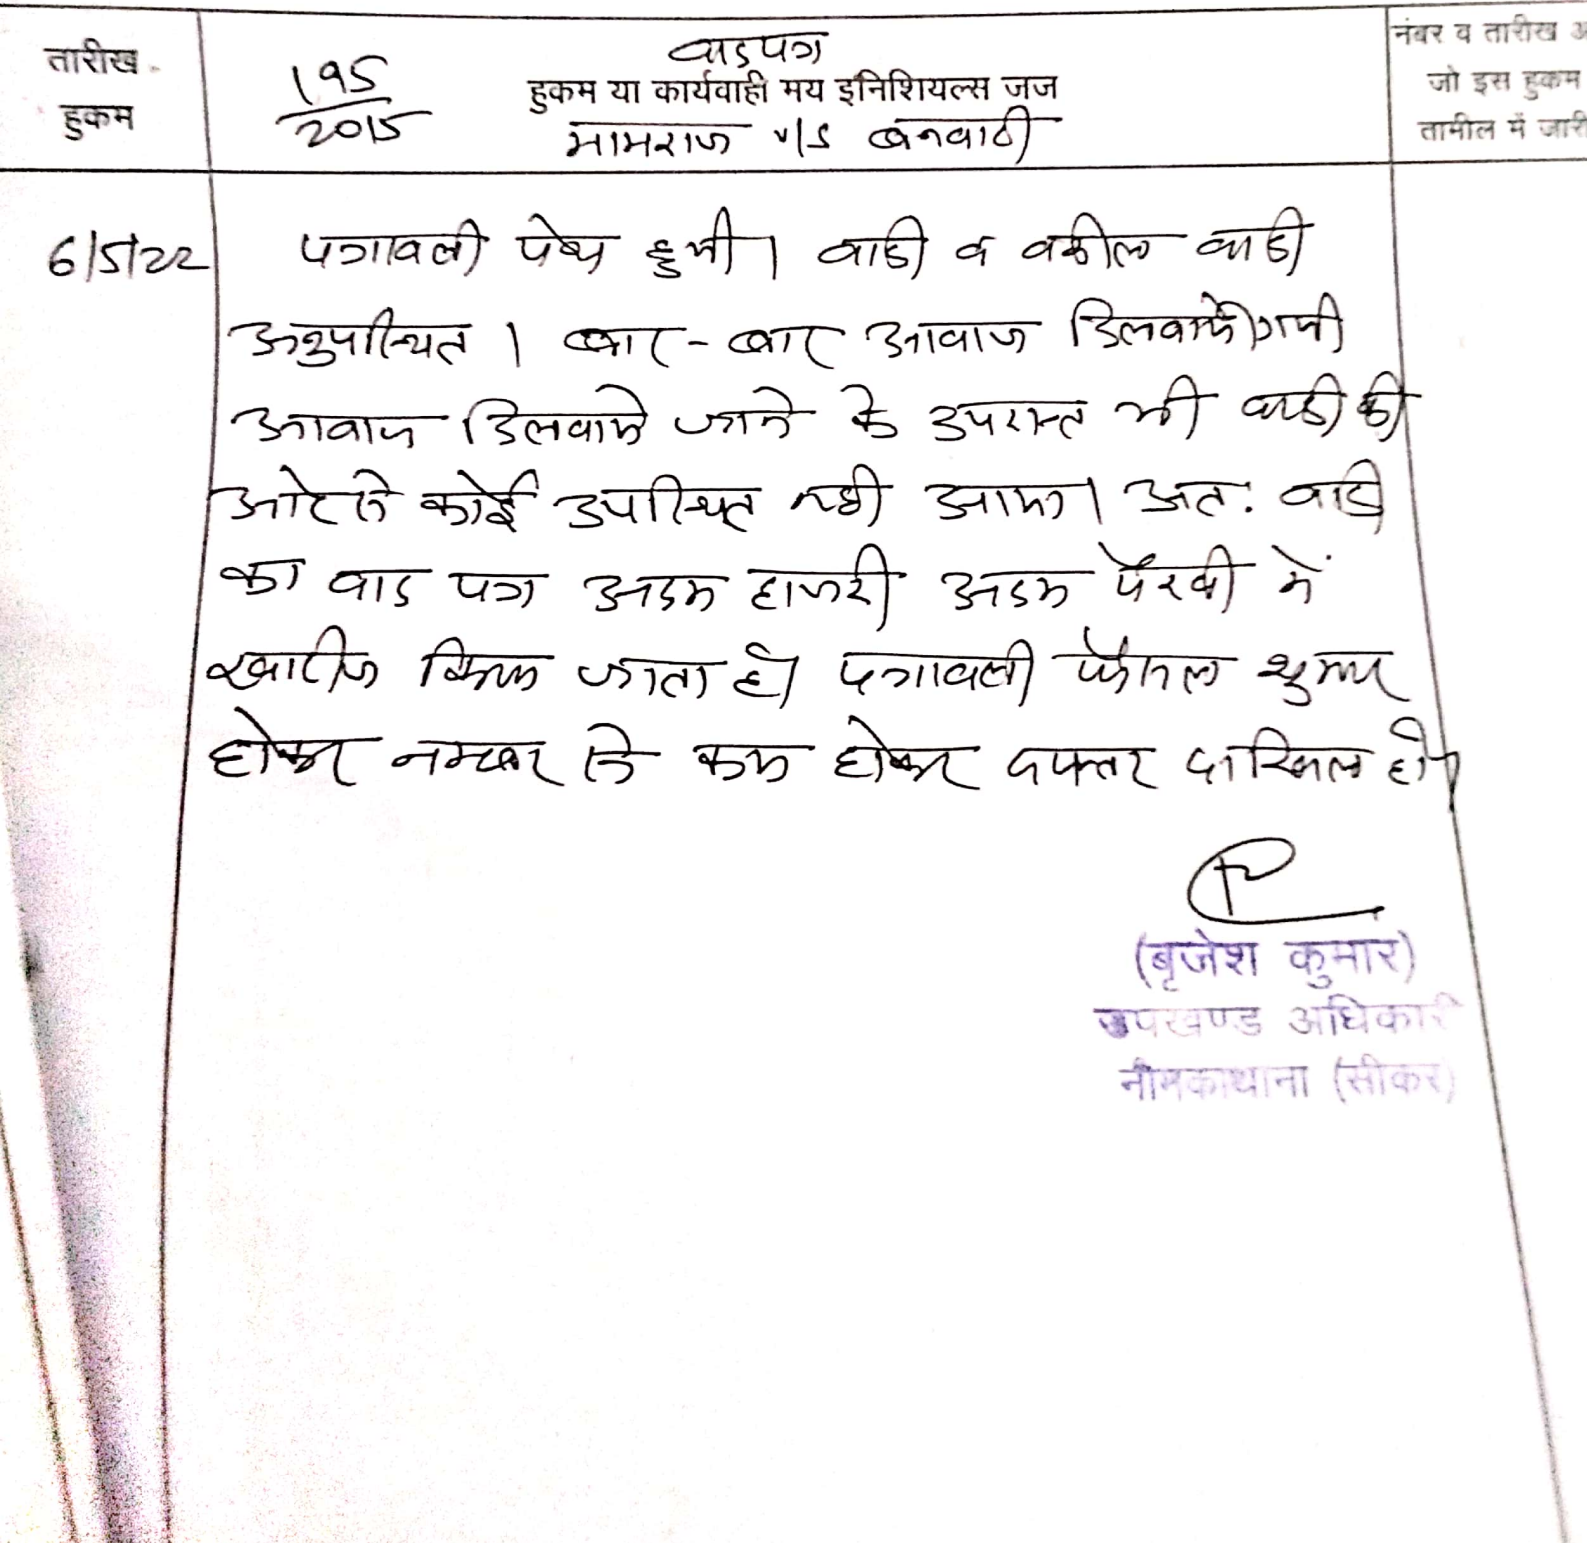 तारीख
हुकम
195
2015
वादपत्र
हुकम या कार्यवाही मय इनिशियल्स जज
मामराज v/s बनवारी
नंबर व तारीख
जो इस हुकम
तामील में जारी
6/5/22
पत्रावली पेश हुयी। वादी व वकील वादी
अनुपस्थित। बार-बार आवाज दिलवायी गयी
आवाज दिलवाये जाने के उपरान्त भी वादी की
ओर से कोई उपस्थित नही आया। अतः वादी
का वाद पत्र अदम हाजरी अदम पैरवी में
खारीज किया जाता है। पत्रावली फैसल शुमार
होकर नम्बर से कम होकर दफ्तर दाखिल हो।
(बृजेश कुमार)
उपखण्ड अधिकारी
नीमकाथाना (सीकर)